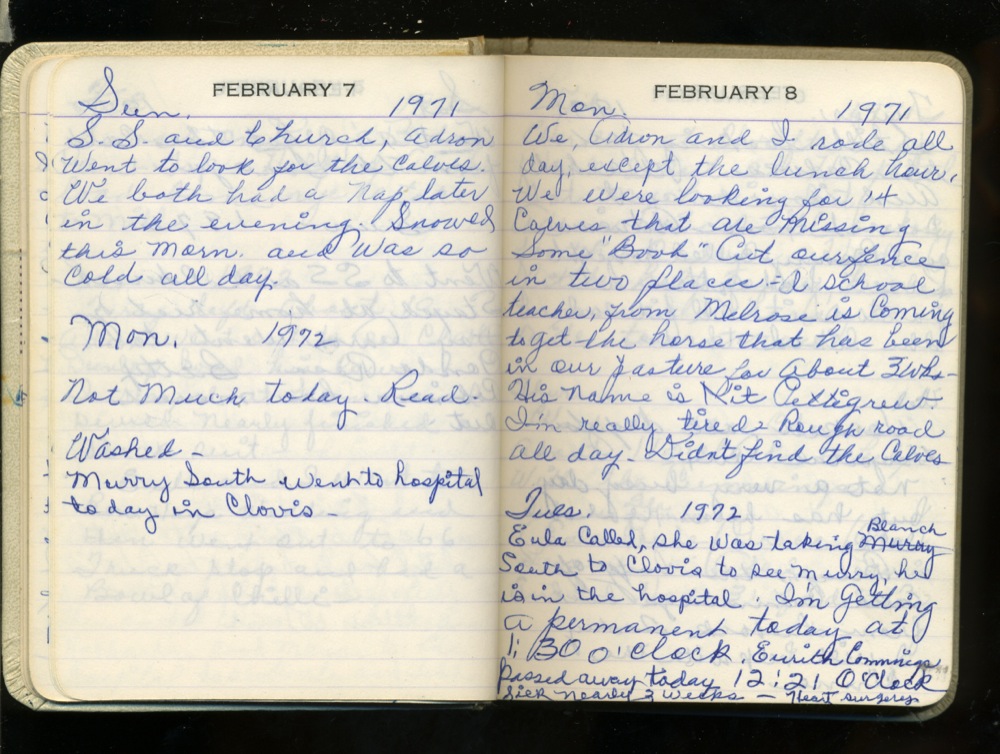 FEBRUARY 7
Sun. 1971
S. S. and Church, Adron
Went to look for the Calves.
We both had a Nap later
in the evening. Snowed
this Morn. and Was so
Cold all day.
Mon. 1972
Not Much today. Read.
Washed -
Murry South went to hospital
today in Clovis -
FEBRUARY 8
Mon. 1971
We, Adron and I rode all
day, except the lunch hour,
We were looking for 14
Calves that are Missing
Some "Boob" Cut our fence
in two places - A school
teacher, from Melrose is Coming
to get the horse that has been
in our pasture for about 3 wks -
His Name is Pettigrew.
I'm really tired - Rough road
all day - Didn't find the Calves
Tues. 1972
Eula Called, she was taking Blanch
Murry
South to Clovis to see Murry, he
is in the hospital. I'm Getting
a permanent today at
1:30 O'Clock. Cummings
Passed away today 12:21 O'Clock
Sick nearly 3 weeks - Heart surgery